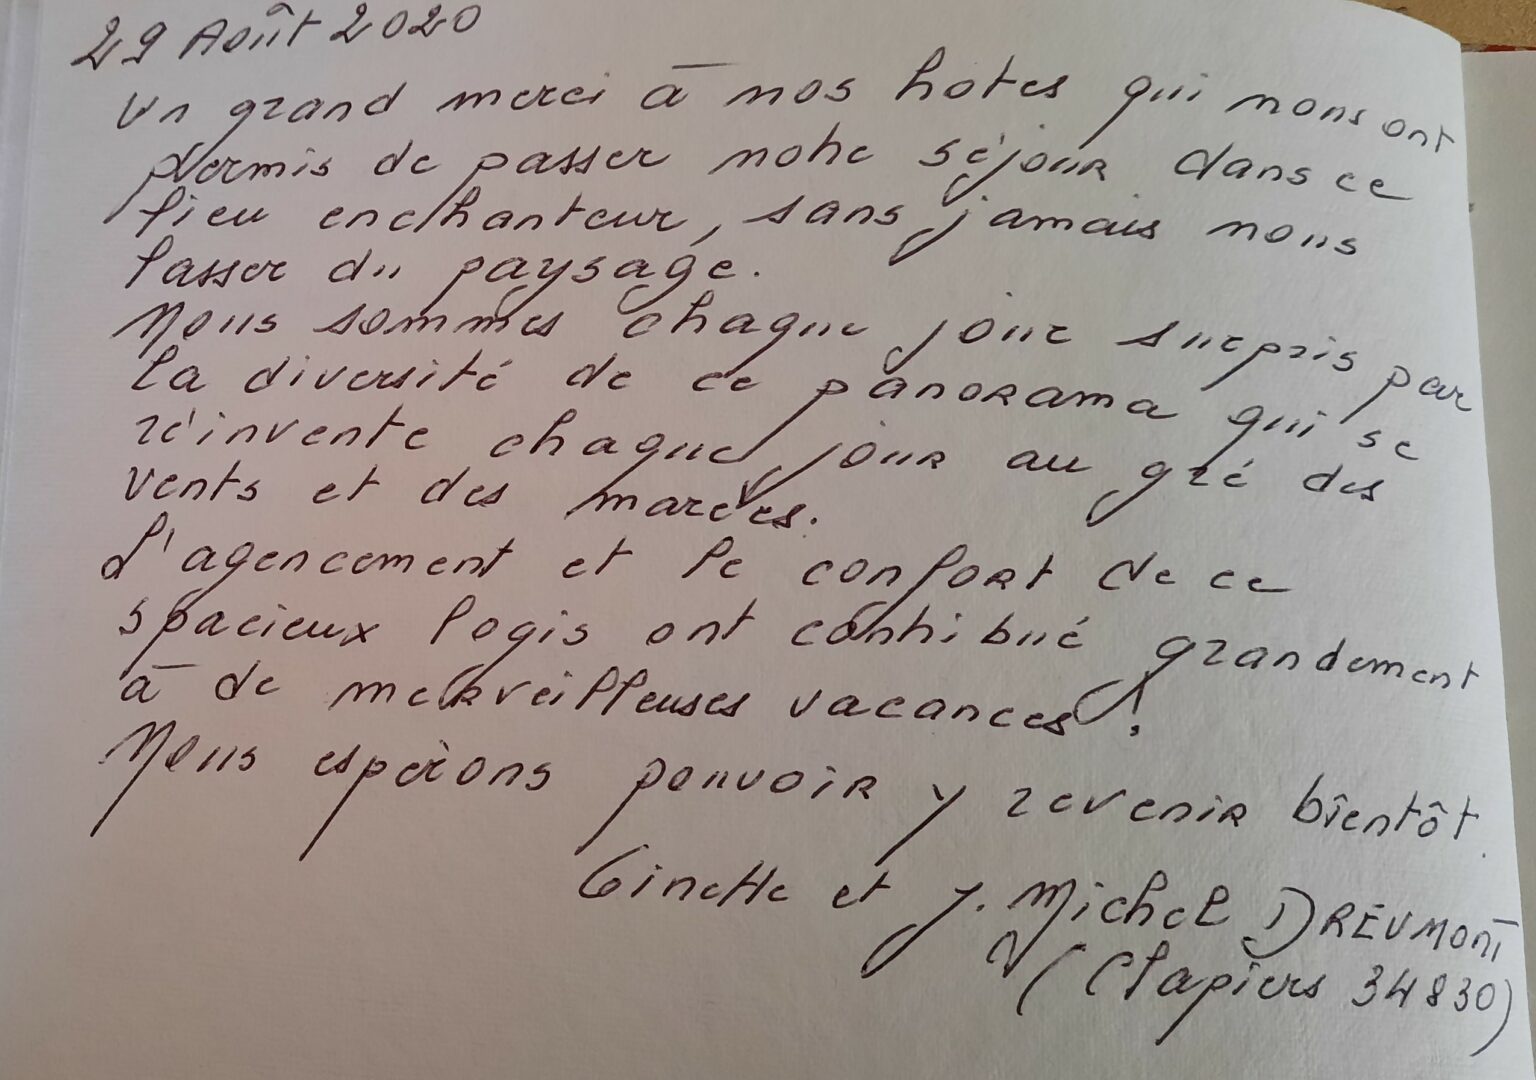 29 Août 2020
Un grand merci à nos hotes qui nous ont
permis de passer notre séjour dans ce
lieu enchanteur, sans jamais nous
lasser du paysage.
Nous sommes chaque jour surpris par
la diversité de ce panorama qui se
réinvente chaque jour au gré des
vents et des marées.
L'agencement et le confort de ce
spacieux logis ont contribué grandement
à de merveilleuses vacances !
Nous espérons pouvoir y revenir bientôt.
Ginette et J. Michel DREUMONT
(Clapiers 34830)